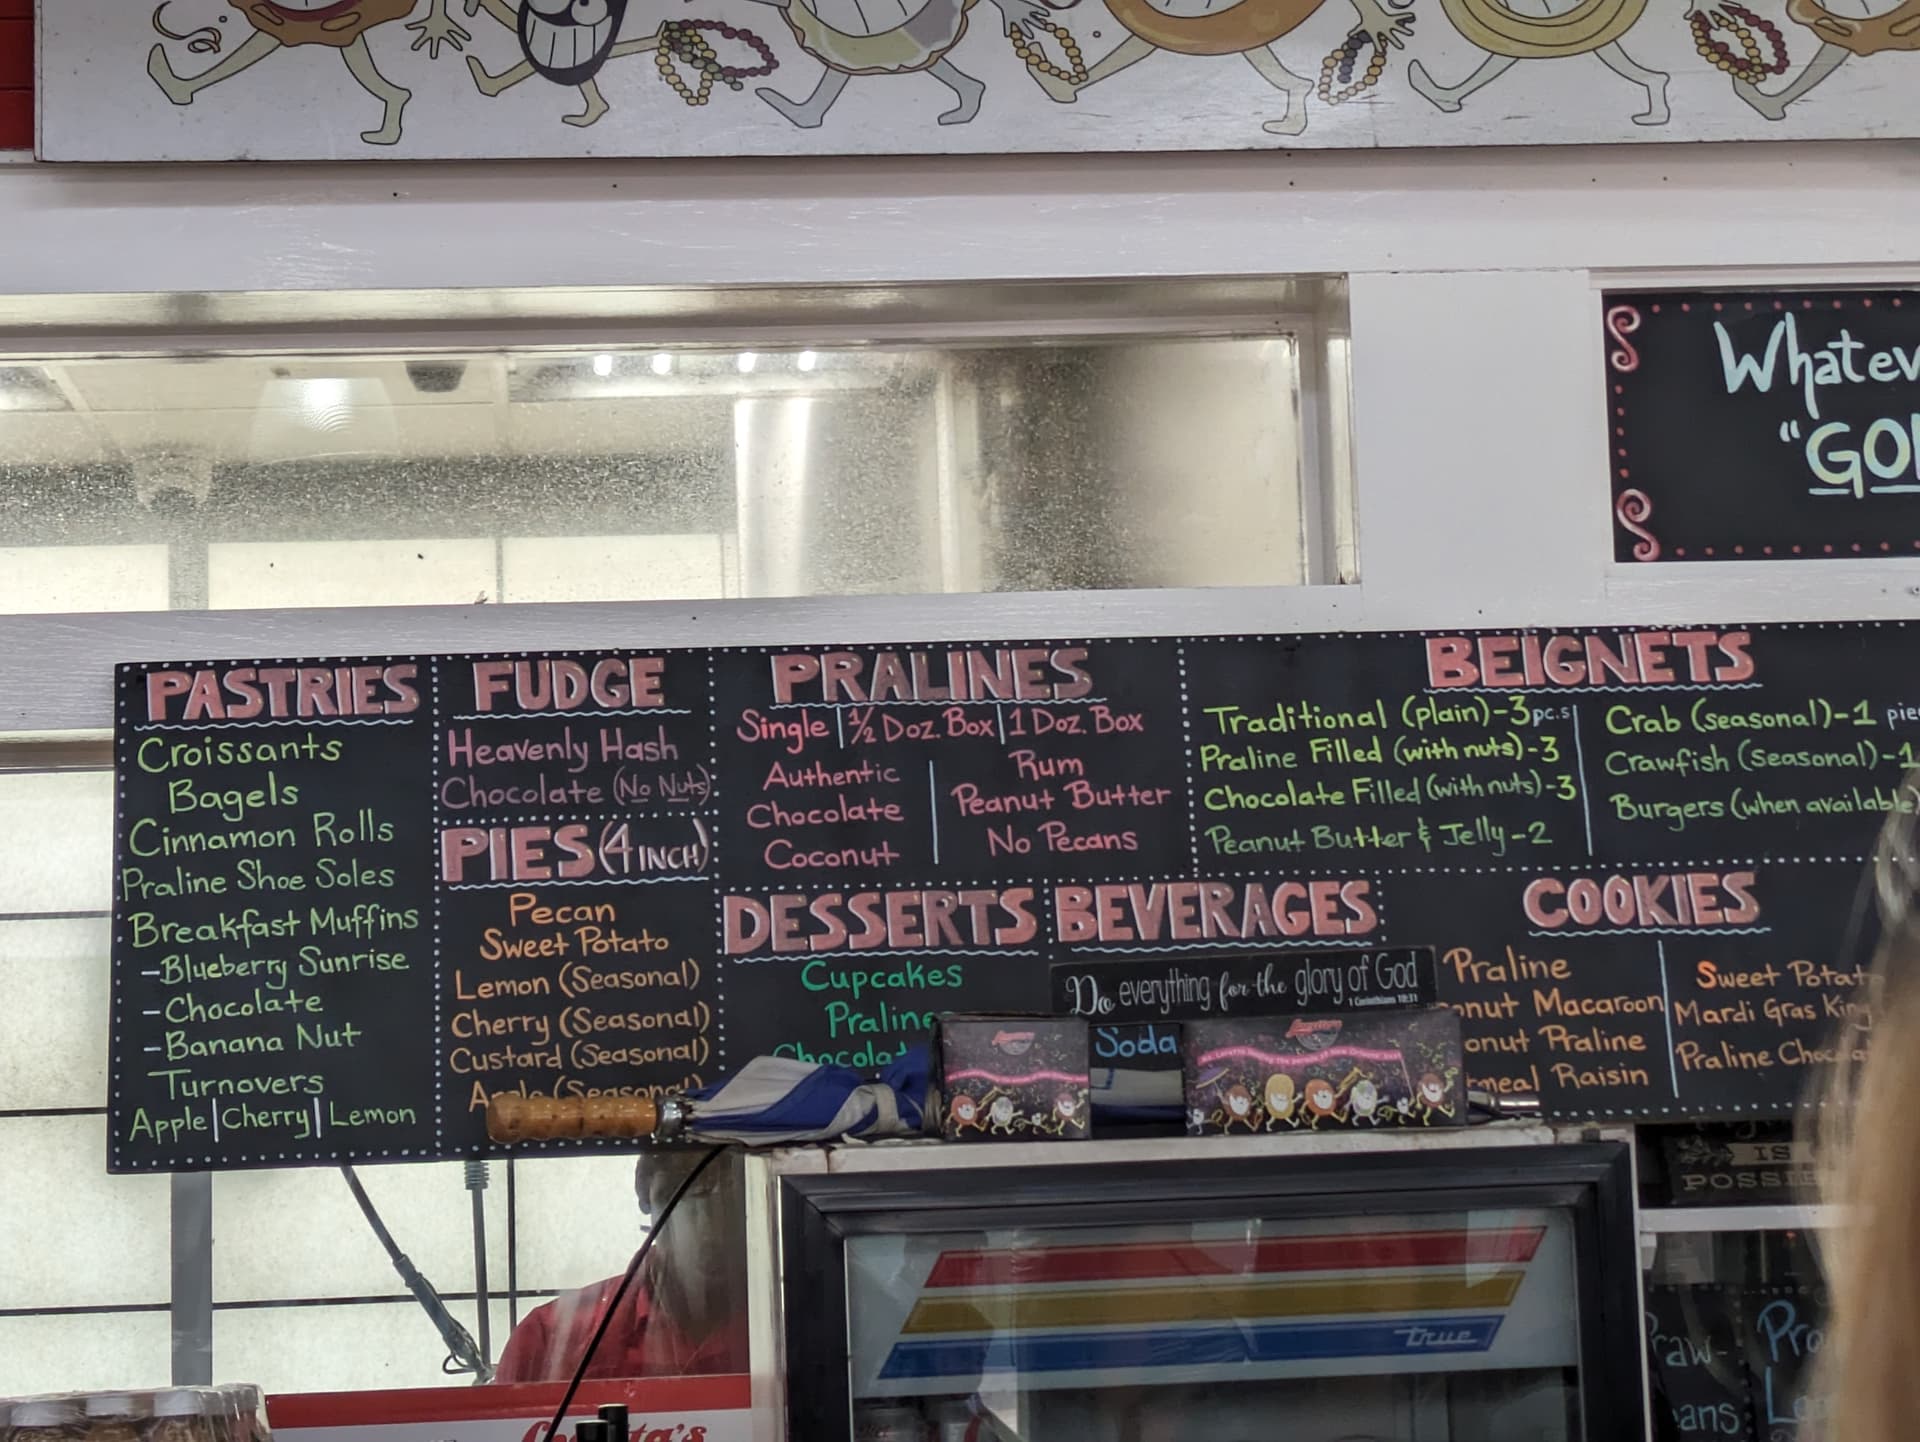 "GO
PASTRIES
Croissants
Bagels
Cinnamon Rolls
Praline Shoe Soles
Breakfast Muffins
-Blueberry Sunrise
-Chocolate
-Banana Nut
Turnovers
Apple|Cherry|Lemon
FUDGE
Heavenly Hash
Chocolate (No Nuts)
PIES (4 INCH)
Pecan
Sweet Potato
Lemon (Seasonal)
Cherry (Seasonal)
Custard (Seasonal)
Apple (Seasonal)
PRALINES
Single | ½ Doz. Box | 1 Doz. Box
Authentic
Chocolate
Coconut
Rum
Peanut Butter
No Pecans
BEIGNETS
Traditional (plain)-3 pc.s
Praline Filled (with nuts)-3
Chocolate Filled (with nuts)-3
Peanut Butter & Jelly-2
Crab (seasonal)-1
Crawfish (seasonal)-1
Burgers (when available)
DESSERTS
Cupcakes
Praline
BEVERAGES
Do everything for the glory of God
1 Corinthians 10:31
Soda
COOKIES
Praline
Macaroon
Praline
Raisin
Sweet
Mardi Gras King
Praline
IS
true